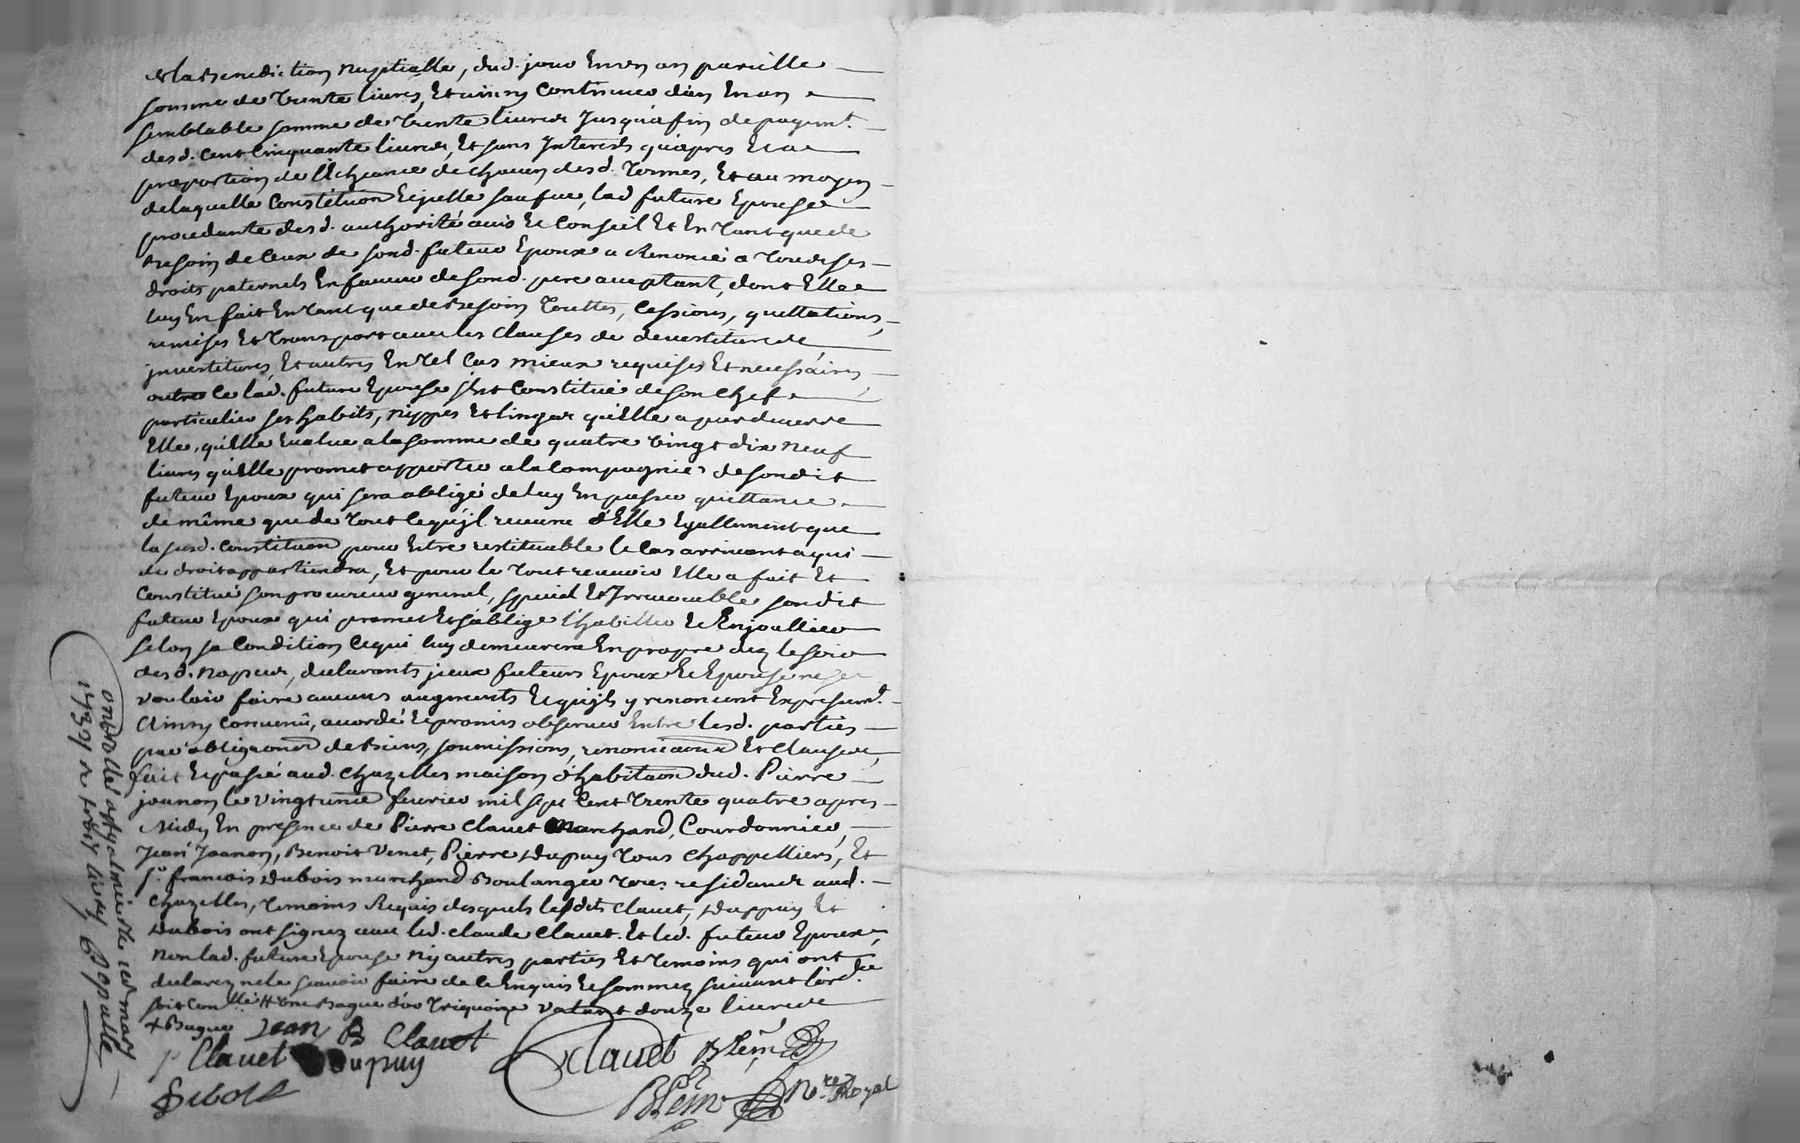 & la Benediction nuptialle, dud. jour En un an pareille
somme de Trente livres, Et ainsy continuer d'an En an
semblable somme de Trente livres Jusqu'a fin de payemt.
desd. Cent Cinquante livres, Et sans Interests qu'apres Et a
proportion de l'Echeance de chacun desd. Termes, Et au moyen
de laquelle Constituon Icelle sauf use, lad future Epouse
procedante desd. authorité avis Et Conseil Et En Tant que de
Besoin de Ceux de sond. futeur Epoux a Renoncé a Tous ses
droits paternels En faveur de sond. pere acceptant, dont Elle
luy En fait En Tant que de Besoin Touttes, Cessions, quittations,
remises Et Transport avec les clauses de devestitures,
investitures, Et autres En Tel Cas mieux requises Et necessaires,
outre Ce lad. future Epouse s'est Constitué de son Chef
particulier ses habits, nippes Et linges qu'Elle a par devers
Elle, qu'Elle Evalue a la somme de quatre vingt dix neuf
livres qu'Elle promet apporter a la Compagnie de sondit
futeur Epoux qui sera obligé de luy En passer quittance
de même que de Tout Ce qu'il recevra d'Elle Egallement que
la susd. Constituon pour Estre restituable le Cas arrivant a qui
de droit appartiendra, Et pour le Tout recevoir Elle a fait Et
Constitué son procureur general, special Et Irrevocable sondit
futeur Epoux qui promet Et s'oblige l'habiller Et Enjoallier
selon sa Condition Ce qui luy demeurera En propre dez le soir
desd. Nopces, declarants iceux futeurs Epoux Et Epouse ne se
vouloir faire aucuns augments Et qu'ils y renoncent Expressemt.
Ainsy Convenü, accordé Et promis observer Entre lesd. parties
par obligaons de Biens, soumissions, renonciaons Et Clauses,
fait Et passé aud. Chazelles maison d'habitaon dud. Pierre
joanon le vingtunie fevrier mil sept Cent Trente quatre apres
Midy En presence de Pierre Clavet Marchand, Courdonnier,
Jean Joanon, Benoit Venet, Pierre Dupuy Tous Chappelliers, Et
sr. francois Dubois marchand Boulanger Tous residants aud.
Chazelles, Temoins Requis desquels lesdits Clavet, Duppuy Et
Dubois ont signez avec led. Claude Clavet. Et led. futeur Epoux,
Non lad. future Epouse Ny autres parties Et Temoins qui ont
declarez ne le sçavoir faire de Ce Enquis Et sommez suivant l'ord.ce
soit Con.llé # Une Bague d'or Triquoize valant douze livres
+ Bague Jean B Clavet
P Clavet Dupuy
Clavet
Dubois
N.re Royal